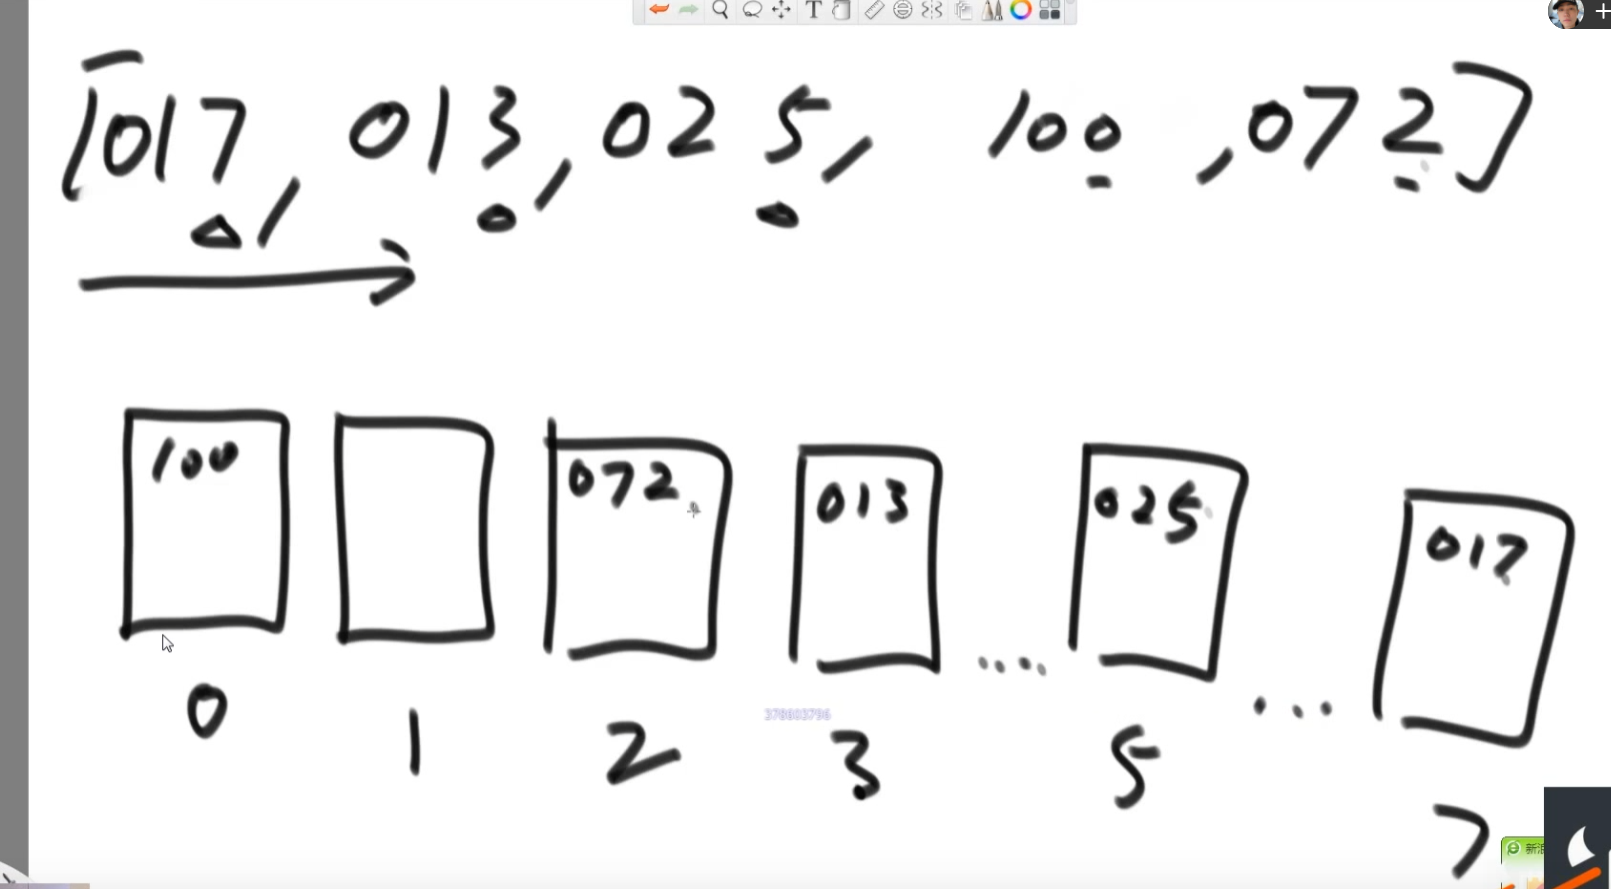 [017, 013, 025, 100, 072]
100 072 013 025 017
0 1 2 3 5 7
378803796